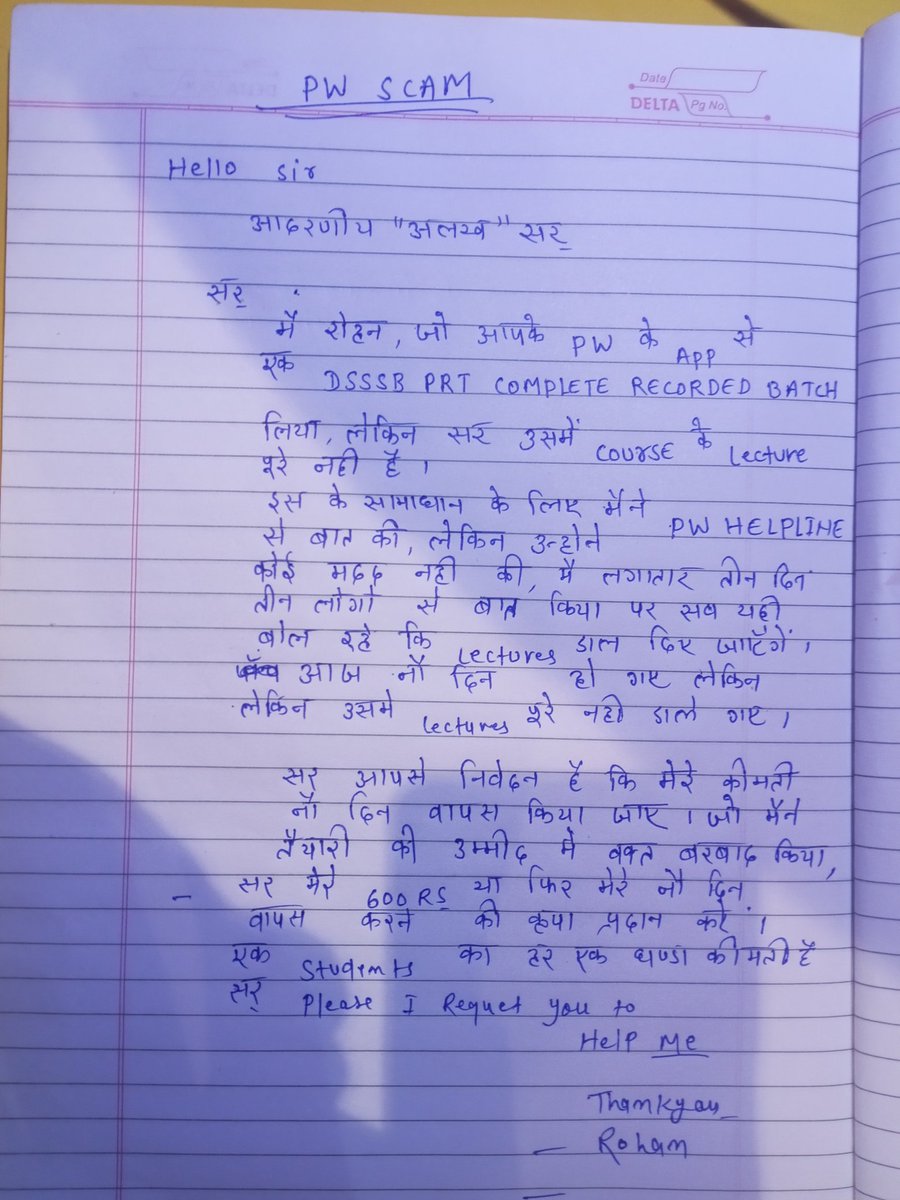 PW SCAM
Date
DELTA Pg No.
Hello sir
आदरणीय "अलख" सर
सर
मै रोहन, जो आपके PW के APP से
एक DSSSB PRT COMPLETE RECORDED BATCH
लिया, लेकिन सर उसमें COURSE के Lecture
पूरे नही है ।
इस के सामाधान के लिए मैंने PW HELPLINE
से बात की, लेकिन उन्होने
कोई मदद नही की, मै लगातार तीन दिन
तीन लोगो से बात किया पर सब यही
बोल रहे कि Lectures डाल दिए जाएँगें ।
आज नौ दिन हो गए लेकिन
लेकिन उसमे Lectures पूरे नही डाले गए ।
सर आपसे निवेदन है कि मेरे कीमती
नौ दिन वापस किया जाए । जो मैंने
तैयारी की उम्मीद मे वक्त बरबाद किया,
- सर मेरे 600 RS या फिर मेरे नौ दिन
वापस करने की कृपा प्रदान करे ।
एक Students का हर एक घण्डा कीमती है
सर Please I Requet you to
Help Me
Thankyou
- Rohan